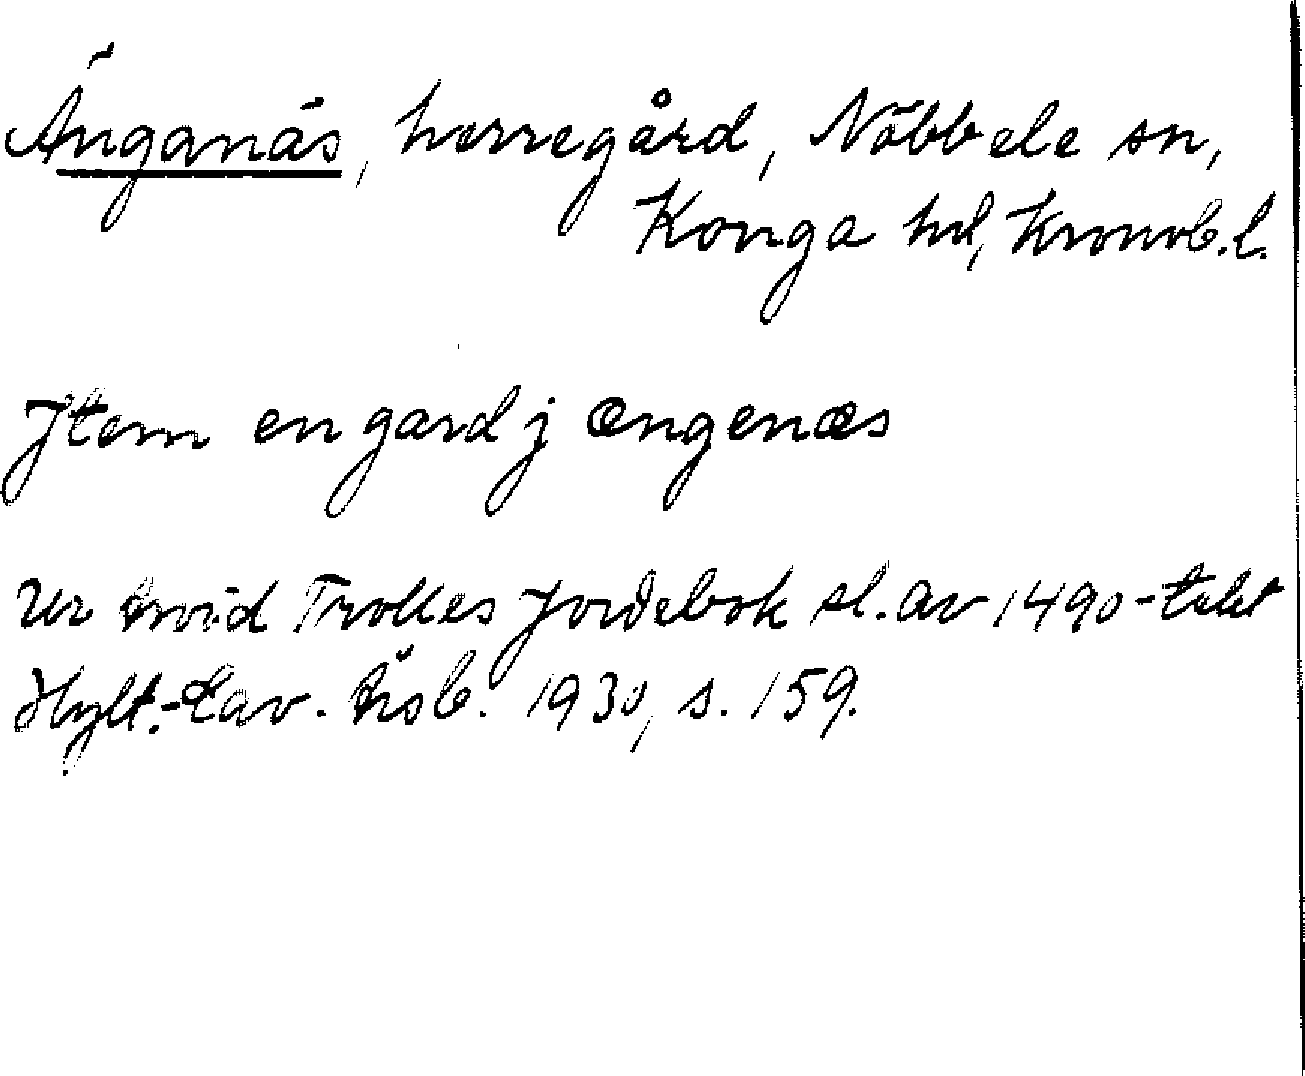 Änganäs, herregård, Nöbbele sn,
Konga hd, Kronob. l.
Jtem en gard j ængenæs
Ur Arvid Trolles Jordebok sl. av 1490-talet
Hylt.-Cav. Årsb. 1930, s. 159.